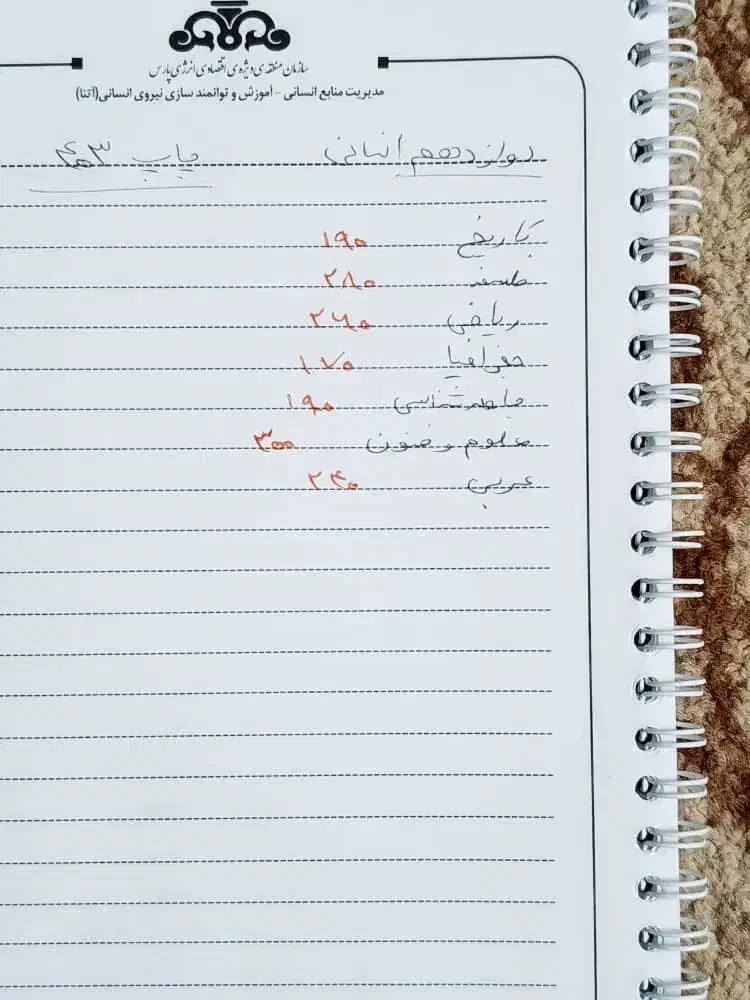 سازمان منطقه‌ی ویژه‌ی اقتصادی انرژی پارس
مدیریت منابع انسانی - آموزش و توانمند سازی نیروی انسانی (آتنا)
دوازدهم انسانی چاپ ۴۰۳
تاریخ ۱۹۰
فلسفه ۲۸۰
ریاضی ۲۶۰
جغرافیا ۱۷۰
جامعه شناسی ۱۹۰
علوم و فنون ۳۰۰
عربی ۲۴۰